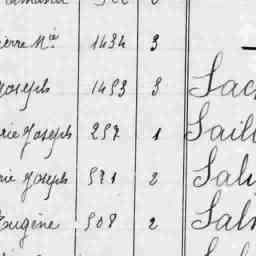 ierre Mie 1434 3
Joseph 1453 3 Sac
rie Joseph 257 1 Sail
rie Joseph 571 2 Sal
Eugène 508 2 Sal